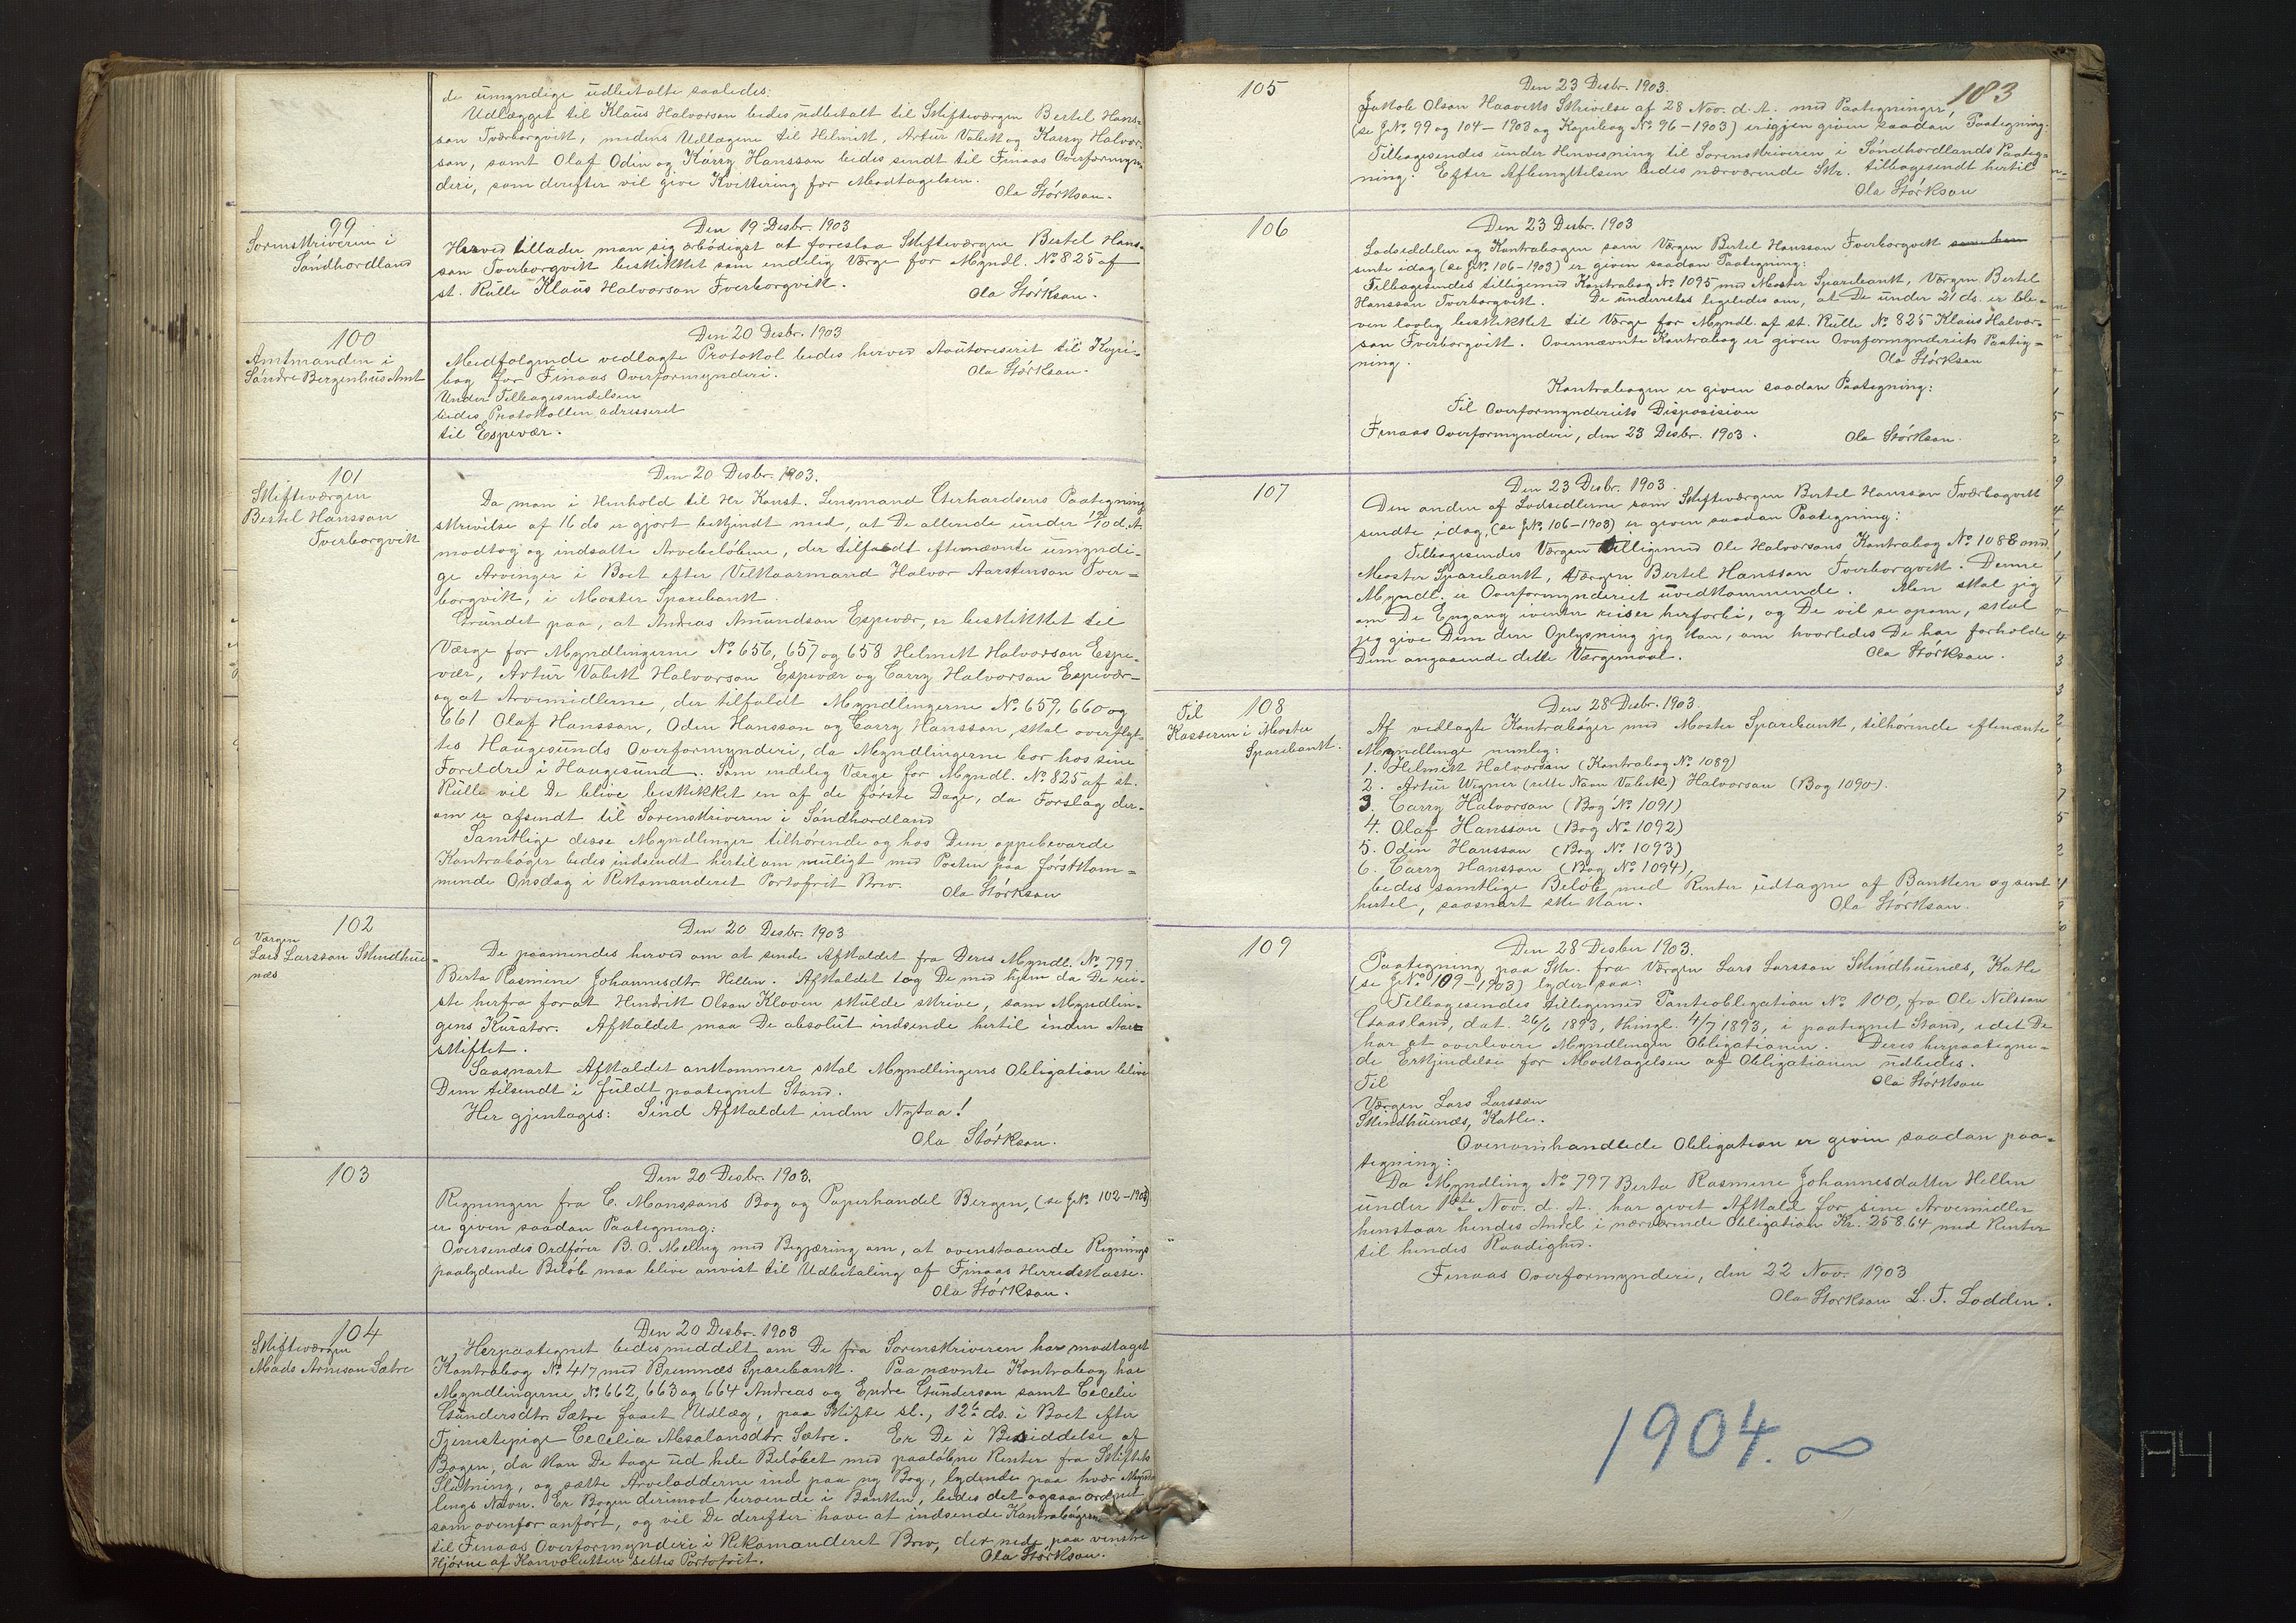 de umyndige udbetalte saaledes:
Udlægget til Klaus Halvorson bedes udbetalt til Skifteværgen Bertel Hans-
son Tværborgvik, medens Udlægene til Helmik, Artur Valik og Karry Halvor-
son, samt Olaf Odin og Kárry Hansson bedes sendt til Finaas Overformyn-
deri, som derefter vil give Kvittering for Modtagelsen.
Ola Störkson.
99
Sorenskriveren i
Söndhordland
Den 19 Desbr. 1903
Herved tillader man sig ærbödigst at foreslaa Skifteværgen Bertel Hans-
son Tverborgvik beskikket som endelig Værge for Myndl. No 825 af
st. Rulle Klaus Halvorson Tverborgvik.
Ola Störkson.
100
Amtmanden i
Söndre Bergenhus Amt
Den 20 Desbr. 1903
Medfølgende vedlagte Protokol bedes herved Autoriseret til Kopi-
bog for Finaas Overformynderi.
Ola Störkson.
Under Tilbagesendelsen
bedes Protokollen adresseret
til Espevær.
101
Skifteværgen
Bertel Hansson
Tverborgvik
Den 20 Desbr. 1903.
Da man i Henhold til Hr Konst. Lensmand Gerhardsens Paategning
skrivelse af 16 ds er gjort bekjendt med, at De allerede under 19/10 d. A.
modtog og indsatte Arvebelöbene, der tilfaldt eftenævnte umyndi-
ge Arvinger i Boet efter Velkaarmand Halvor Aarstenson Tver-
borgvik, i Moster Sparebank.
Grundet paa, at Andreas Amundson Espevær, er beskikket til
Værge for Myndlingerne No 656, 657 og 658 Helmik Halvorson Espe-
vær, Artur Valik Halvorson Espevær og Carry Halvorson Espevær-
og at Arvemidlerne, der tilfaldt Myndlingerne No 659, 660 og
661 Olaf Hansson, Oden Hansson og Carry Hansson, skal overflyt-
tes Haugesunds Overformynderi, da Myndlingerne bor hos sine
Foreldre i Haugesund. Som endelig Værge for Myndl. No 825 af st.
Rulle vil De blive beskikket en af de förste Dage, da Forslag der-
om er afsendt til Sorenskriveren i Söndhordland
Samtlige disse Myndlinger tilhörende og hos Dem oppebevarde
Kontraböger bedes indsendt hertil om muligt med Posten paa förstkom-
mende Onsdag i Rekomanderet Portofrit Brev.
Ola Störkson
102
Værgen
Lars Larsson Skindhue-
næs
Den 20 Desbr. 1903
De paamindes herved om at sende Afkaldet fra Deres Myndl. No 797
Berta Rasmine Johannesdtr Hellen. Afkaldet tog De med hjem da De rei-
ste herfra forat Hendrik Olson Kloven skulde skrive, som Myndlin-
gens Kurator. Afkaldet maa De absolut indsende hertil inden Aars-
skiftet.
Saasnart Afkaldet ankommer skal Myndlingens Obligation blive
Dem tilsendt i fuldt paategnet Stand.
Her gjentages: Send Afkaldet inden Nytaa!
Ola Störkson.
103
Den 20 Desbr. 1903.
Regningen fra C. Monssons Bog og Papirhandel Bergen, (se J.No 102-1903)
er given saadan Paategning:
Oversendes Ordförer B. O. Meling med Begjæring om, at ovenstaaende Regnings
paalydende Belöb maa blive anvist til Udbetaling af Finaas Herredskasse.
Ola Störkson.
104
Skifteværgen
Mads Arneson Sætre
Den 20 Desbr. 1903
Herpaategnet bedes middelt om De fra Sorenskriveren har modtaget
Kontrabog No 417 med Bremnæs Sparebank. Paa nævnte Kontrabog har
Myndlingerne No 662, 663 og 664 Andreas og Endre Gunderson samt Cecelie
Gundersdtr. Sætre faaet Udlæg, paa Skifte sl., 12te ds. i Boet efter
Tjenestepige Cecelia Absalonsdtr. Sætre. Er De i Besiddelse af
Bogen, da kan De tage ud hele Belöbet med paalöbne Renter fra Skiftets
Slutning, og sætte Arvelodderne ind paa ny Bog, lydende paa hver Mynd-
lings Navn. Er Bogen derimod beroende i Banken, bedes det ogsaa ordnet
som ovenfor anfört, og vil De derefter have at indsende Kontrabögerne
til Finaas Overformynderi i Rekomanderet Brev, der nede paa venstre
Hjörne af Konvolutten settes Portofrit.
Ola Störkson.
183
105
Den 23 Desbr. 1903.
Jakob Olson Haaviks Skrivelse af 28 Nov. d. A. med Paategninger,
(se J.No 99 og 104-1903 og Kopibog No 96-1903) er igjen given saadan Paategning:
Tilbagesendes under Henvisning til Sorenskriveren i Söndhordlands Paateg-
ning. Efter Afbenyttelsen bedes nærværende Skr. tilbagesendt hertil
Ola Störkson
106
Den 23 Desbr. 1903
Lodseddelen og Kontrabogen som Værgen Bertel Hansson Tverborgvik som han
sente idag (se J.No. 106-1903) er given saadan Paategning:
Tilbagesendes tilligemed Kontrabog No 1095 med Moster Sparebank, Værgen Bertel
Hansson Tverborgvik. De underrettes ligeledes om, at De under 21 ds. er ble-
ven lovlig beskikket til Værge for Myndl. af st. Rulle No 825 Klaus Halvor-
son Tverborgvik. Ovennævnte Kontrabog er given Overformynderiets Paateg-
ning.
Ola Störkson
Kontrabogen er given saadan Paategning:
Til Overformynderiets Disposision
Finaas Overformynderi, den 23 Desbr. 1903.
Ola Störkson.
107
Den 23 Desbr. 1903.
Den anden af Lodsedlerne som Skifteværgen Bertel Hansson Tværborgvik
sendte idag, (se J.No. 106-1903) er given saadan Paategning:
Tilbagesendes Værgen tilligemed Ole Halvorsons Kontrabog No 1088 med
Moster Sparebank, Værgen Bertel Hansson Tverborgvik. Denne
Myndl. er Overformynderiet uvedkommende. Men skal jeg
om De Engang iveien reiser herforbi, og De vil se opom, skal
jeg give Dem den Oplysning jeg kan, om hvorledes De har forholde
Dem angaaende dette Værgemaal.
Ola Störkson.
108
Til
Kassereren i Moster
Sparebank.
Den 28 Desbr. 1903.
Af vedlagte Kontraböger med Moster Sparebank, tilhörende eftenænte
Myndlinge nemlig:
1. Helmik Halvorson (Kontrabog No. 1089)
2. Artur Wegner (rette Navn Valick) Halvorson (Bog 1090).
3. Carry Halvorson (Bog No. 1091)
4. Olaf Hansson (Bog No 1092)
5. Odin Hansson (Bog No 1093)
6. Carry Hansson (Bog No 1094),
bedes samtlige Belöb med Renter udtagne af Banken og sent
hertel, saasnart ske kan.
Ola Störkson.
109
Den 28 Desber 1903.
Paategning paa Skr. fra Værgen Lars Larsson Skindhuenæs, Katle
(se J.No 109-1903) lyder saa:
Tilbagesendes tilligemed Panteobligation No 100, fra Ole Nilsson
Graasland, dat. 26/6 1893, thingl. 4/7 1893, i paategnet Stand, idet De
har at overlevere Myndlingen Obligationen. Deres herpaategne-
de Erkjendelse for Modtagelsen af Obligationen udbedes.
Til
Ola Störkson
Værgen Lars Larsson
Skindhuenæs, Katle.
Ovenomhandlede Obligation er given saadan paa-
tegning:
Da Myndling No 797 Berta Rasmine Johannesdatter Hellen
under 1ste Nov. d. A. har givet Afkald for sine Arvemidler
henstaar hendes Andel i nærværende Obligation Kr. 258.64 med Renter
til hendes Raadighed.
Finaas Overformynderi, den 22 Nov. 1903
Ola Störkson L. T. Lodden.
1904.